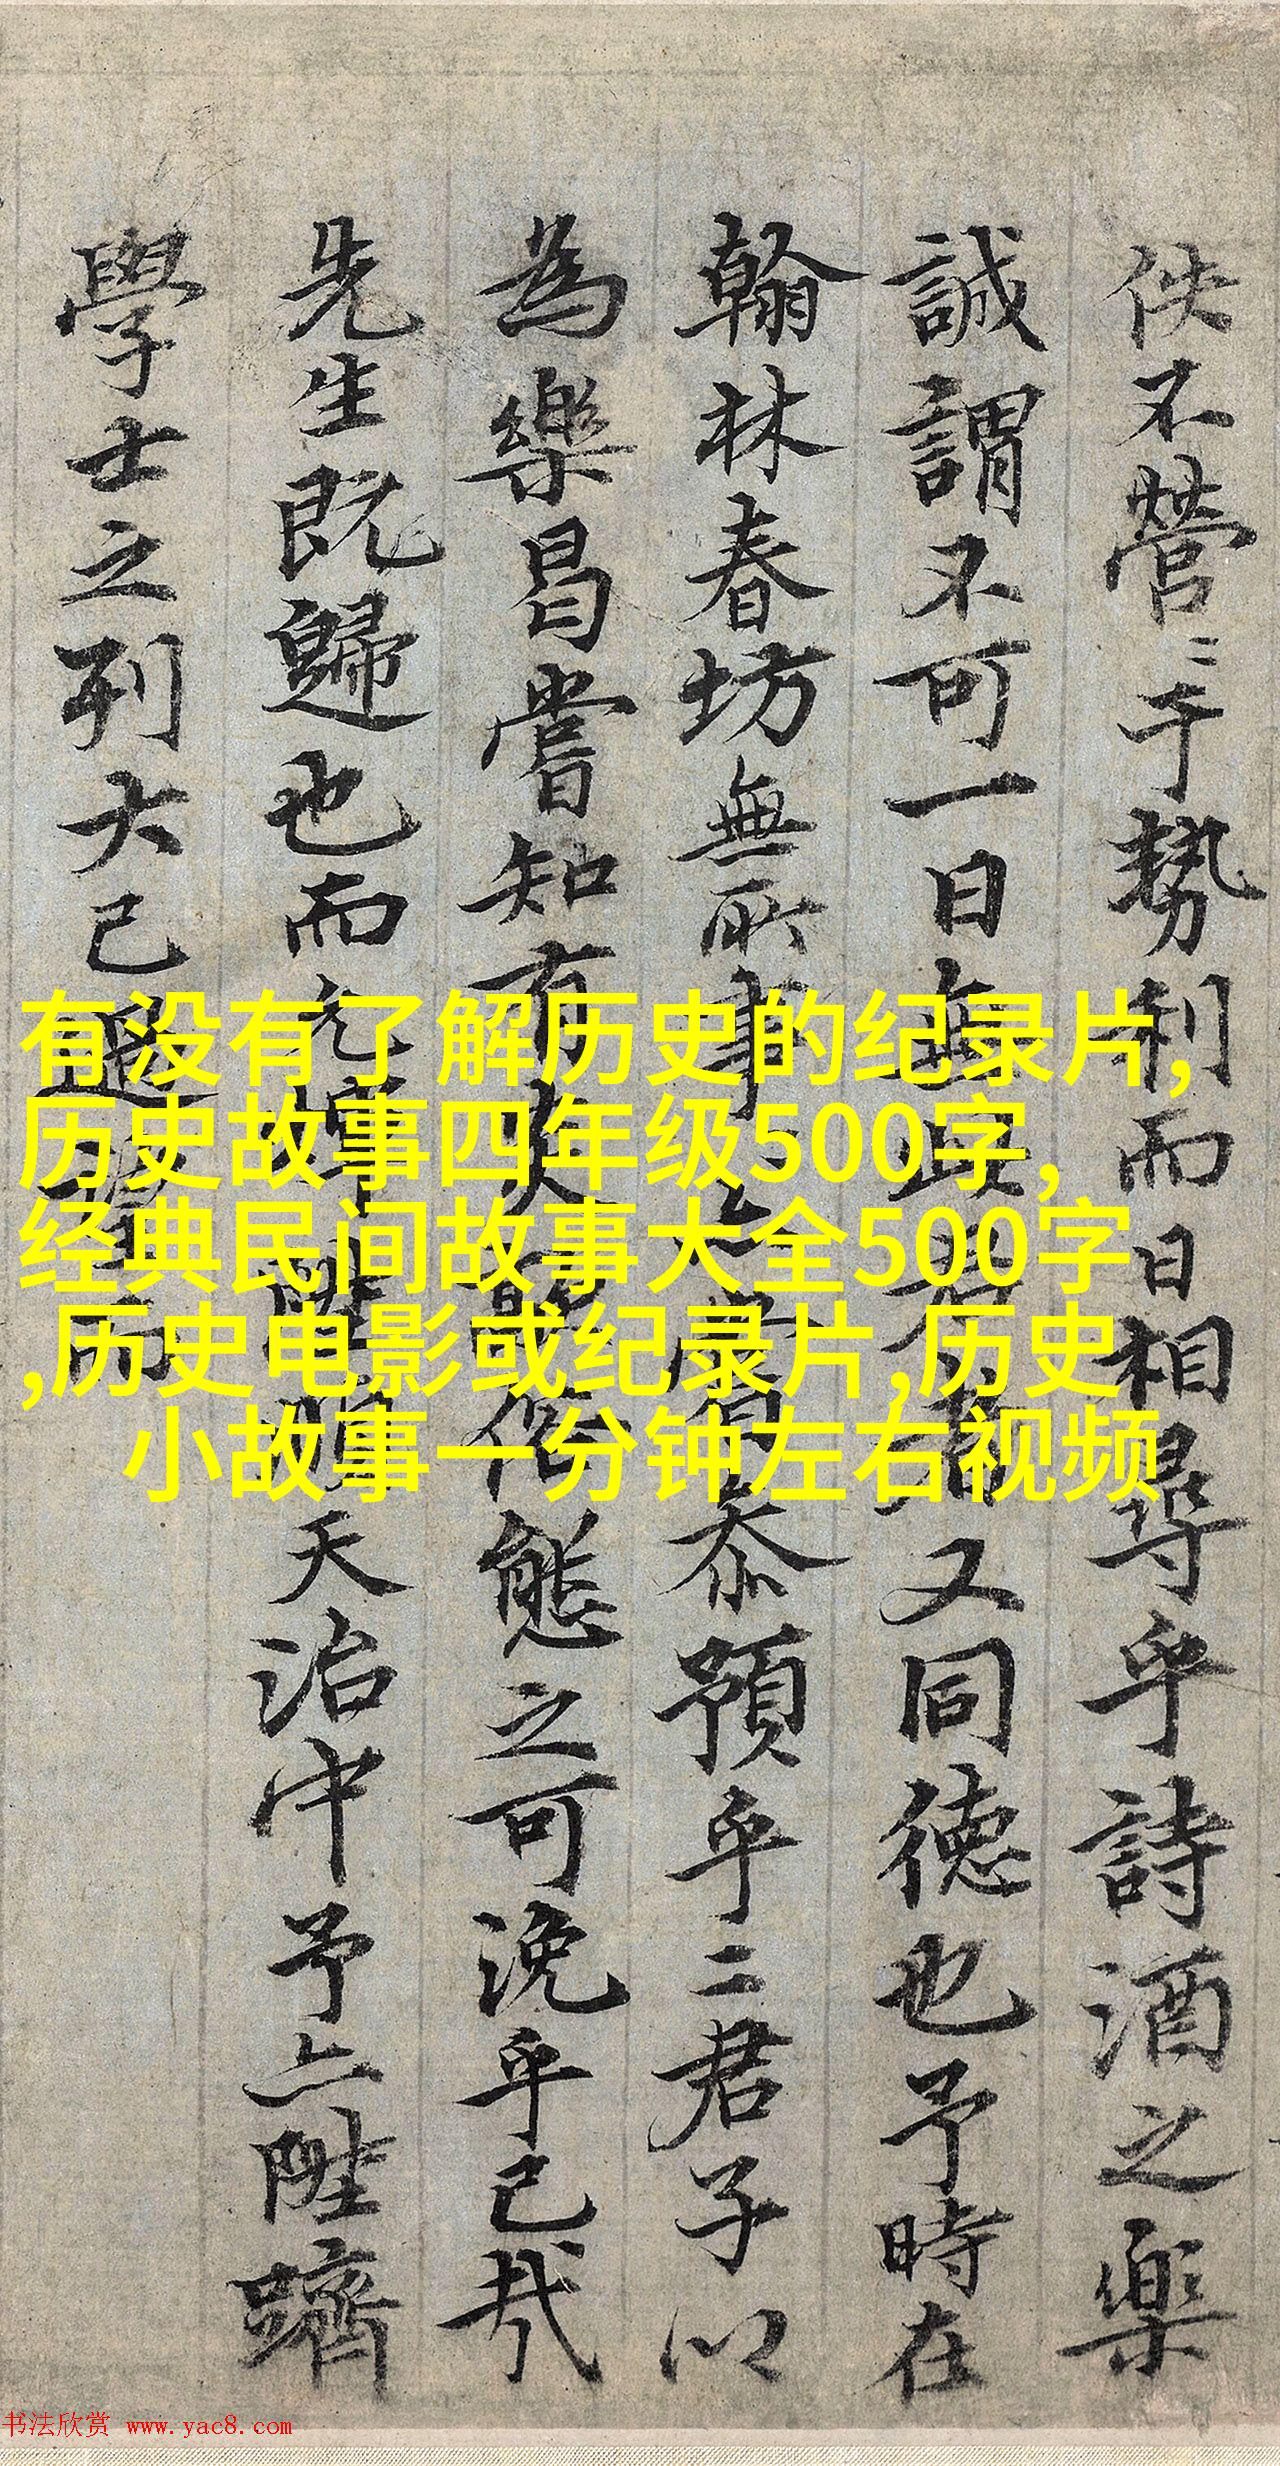 佚不營〻于勢利而日相尋乎詩酒之樂
誠謂不可一日無此君者又同德也予時在
翰林春坊無所事事
泰預乎二君子以
為樂曷嘗知有
態之可浼乎已哉
先生既歸也而
天治中予亦陞躋
學士之列大已
而
有没有了解历史的纪录片,
历史故事四年级500字,
经典民间故事大全500字
,历史电影或纪录片,历史
小故事一分钟左右视频
书法欣赏 www.yac8.com